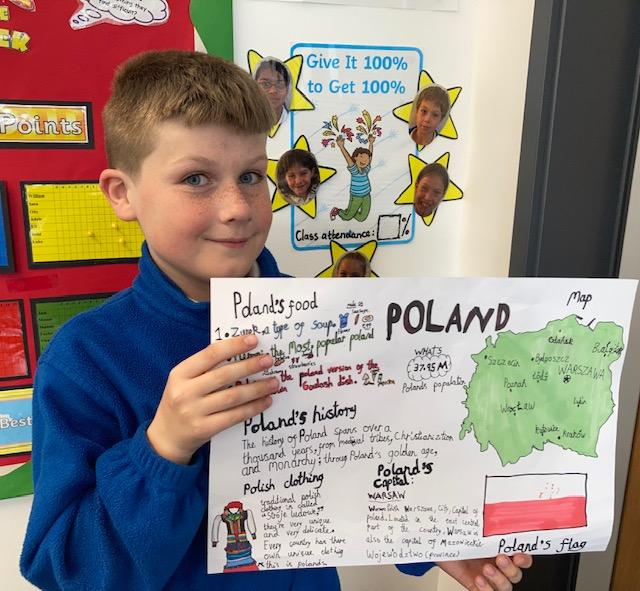 find this
difficult?
EEK
Points
William
Best
Give It 100%
to Get 100%
Class attendance:
%
Poland's food
1. Zurek, a type of soup.
the most popular poland
the poland version of the
dish.
POLAND
WHAT'S
37.95 M
Polands population
Map
Gdańsk
Szczecin
Bydgoszcz
WARSZAWA
Poznań
Łódź
Wrocław
Lublin
Kraków
Poland's history
The history of Poland spans over a
thousand years, from
tribes,
and monarchy; throug Poland's golden age,
Polish clothing
traditional polish
clothing is called
"Stroje ludowe"
they're very unique
and very delicate.
Every country has there
own unique clothig
this is polands
Poland's
Capital:
WARSAW
Warszawa, City, Capital of
poland. Located in the east central
part of the country, Warsaw is
also the capital of Mazowieckie
Województwo (province)
Poland's flag